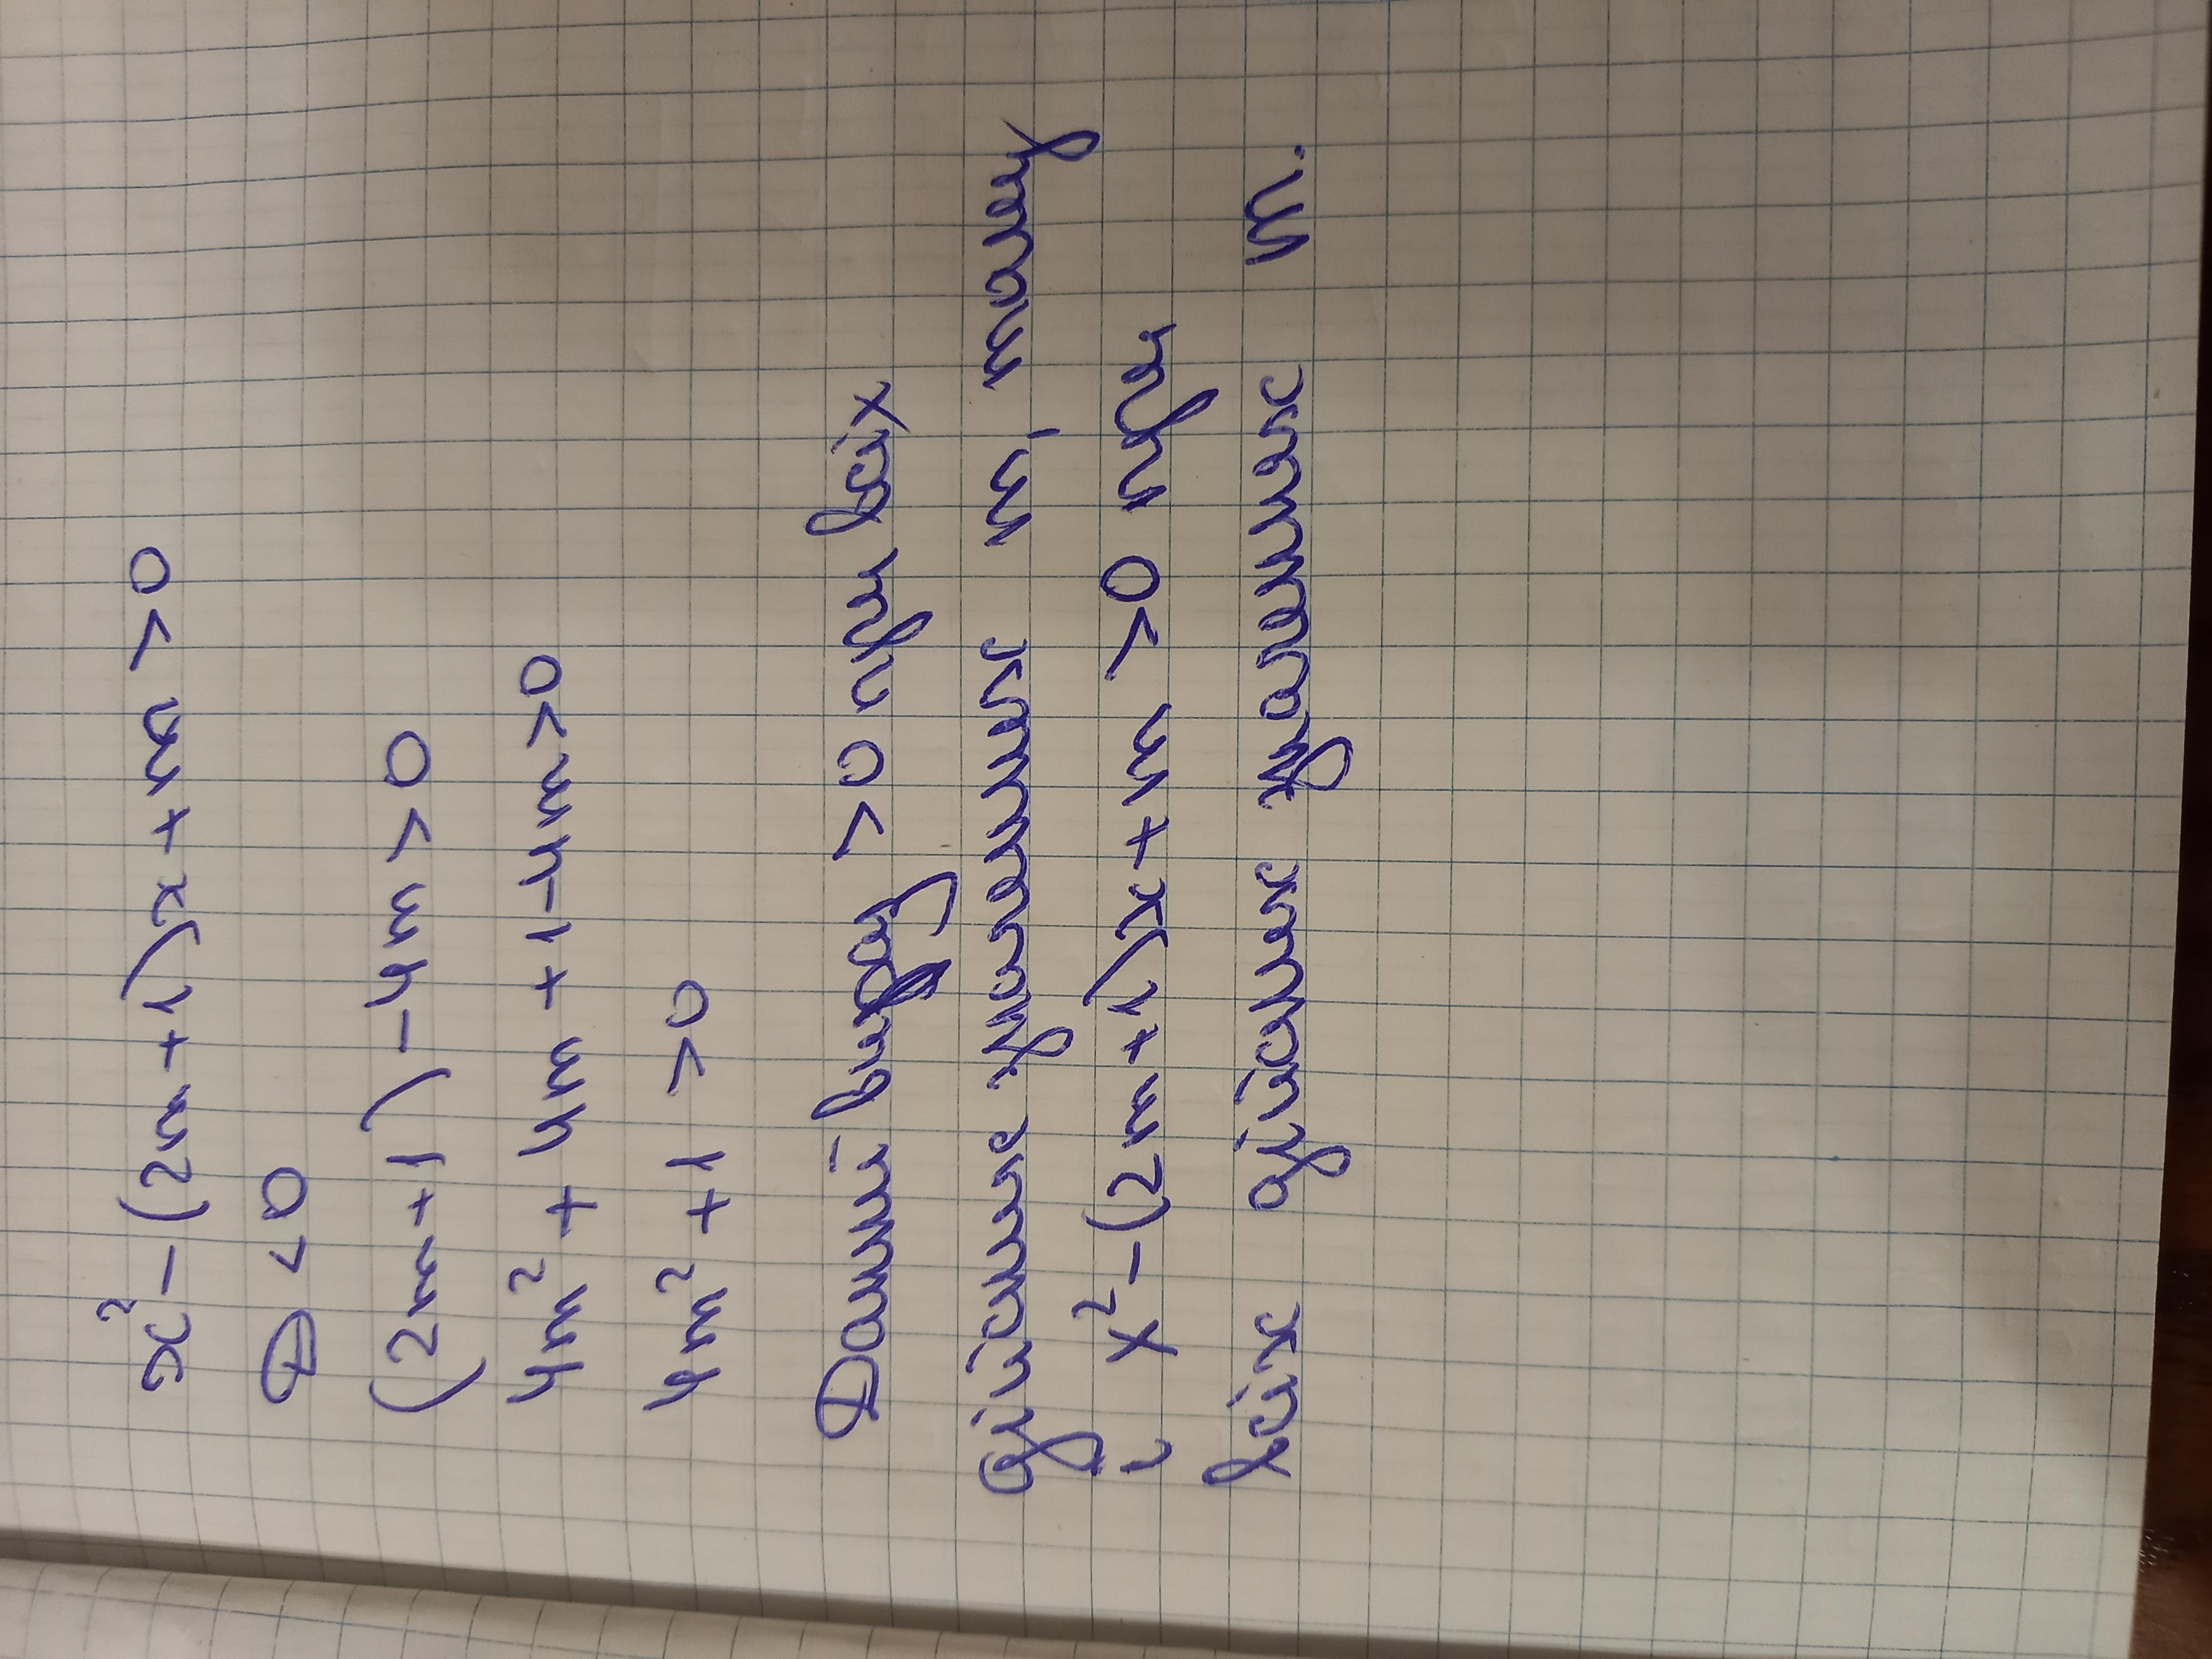 x² - (2m + 1)x + m > 0
D < 0
(2m + 1) - 4m > 0
4m² + 4m + 1 - 4m > 0
4m² + 1 > 0
Даний вираз > 0 при всіх
дійсних значеннях m, тому
і x² - (2m + 1)x + m > 0 при
всіх дійсних значеннях m.